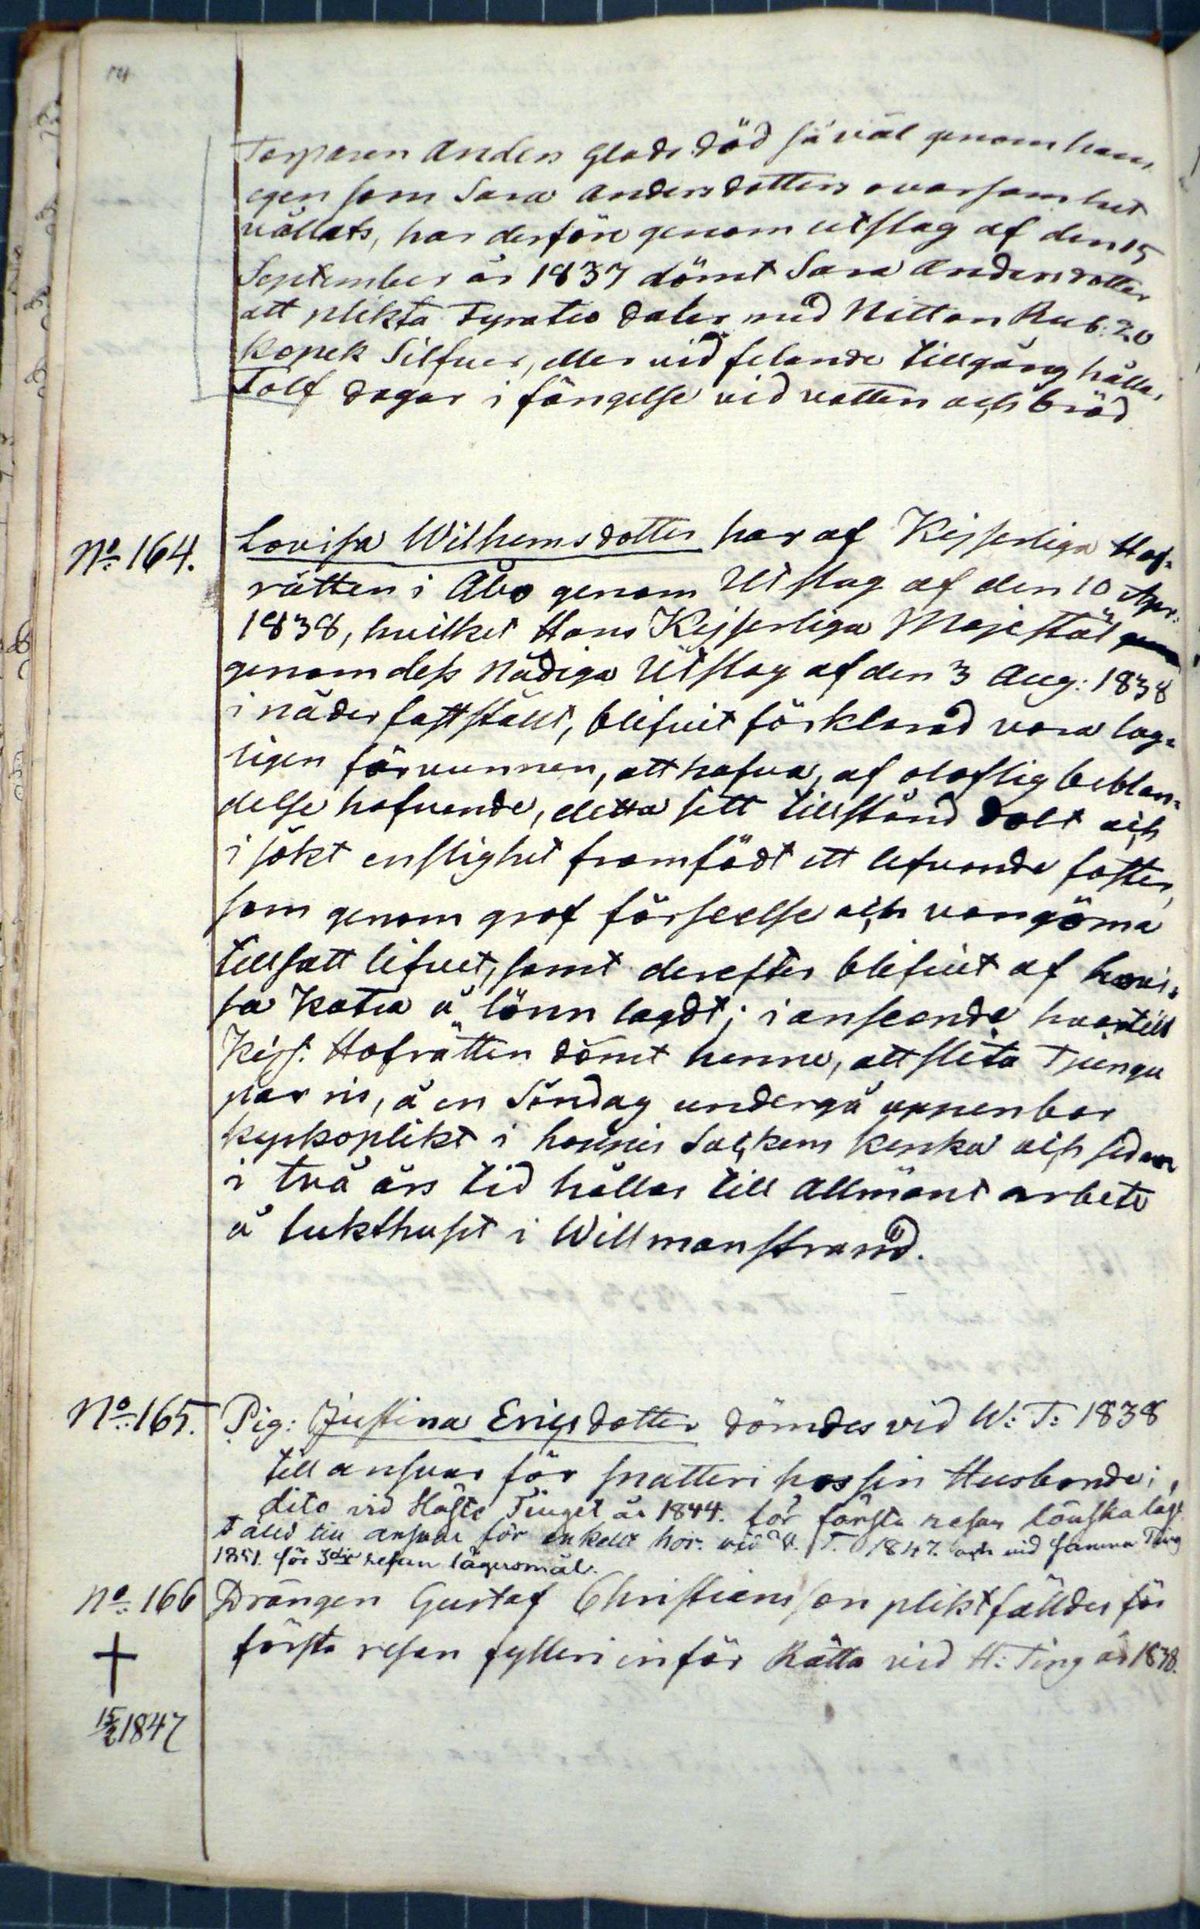 Torparen Anders Glads död så väl genom hans
egen som Sara Andersdotters ovarsamhet
vållats, har derföre genom utslag af den 15
September år 1837 dömt Sara Andersdotter
att plikta Fyratio daler med Nitton Rub: 20
Kopek Silfver, eller vid felande tillgång hållas
Tolf dagar i fängelse vid vatten och bröd
No 164. Lovisa Wilhemsdotter har af Kejserliga Hof-
rätten i Åbo genom Utslag af den 10 Apr:
1838, hvilket Hans Kejserliga Majestät
genom dess Nådiga Utslag af den 3 Aug: 1838
i nåder fastställt, blifvit förklarad vara lag-
ligen förvunnen, att hafva, af oloflig beblan-
delse hafvande, detta sitt tillstånd dolt och
i sökt enslighet framfödt ett lefvande foster,
som genom grof förseelse och vangöma
tillsatt lifvet, samt derefter blifvit af Lovi-
sa å lönn lagdt; i anseende hvartill
Kejs. Hofrätten dömt henne, att slita Tjugu
par ris, å en Söndag undergå uppenbar
kyrkoplikt i hennes Sockens Kyrka och sedan
i två års tid hållas till allmänt arbete
å tukthuset i Willmanstrand.
No 165. Pig: Justina Ericsdotter dömdes vid W: T: 1838
till ansvar för snatteri hos sin Husbonde;
dito vid Höste Tinget år 1844. för första resan lönskaläge
fälld till ansvar för enkelt hor. vid T. 1847. och vid samma Ting
1851. för 3dje resan lägersmål.
No 166 Drängen Gustaf Christiansson pliktfälldes för
första resan fylleri inför Rätta vid H: Ting år 1838.
15/2 1847